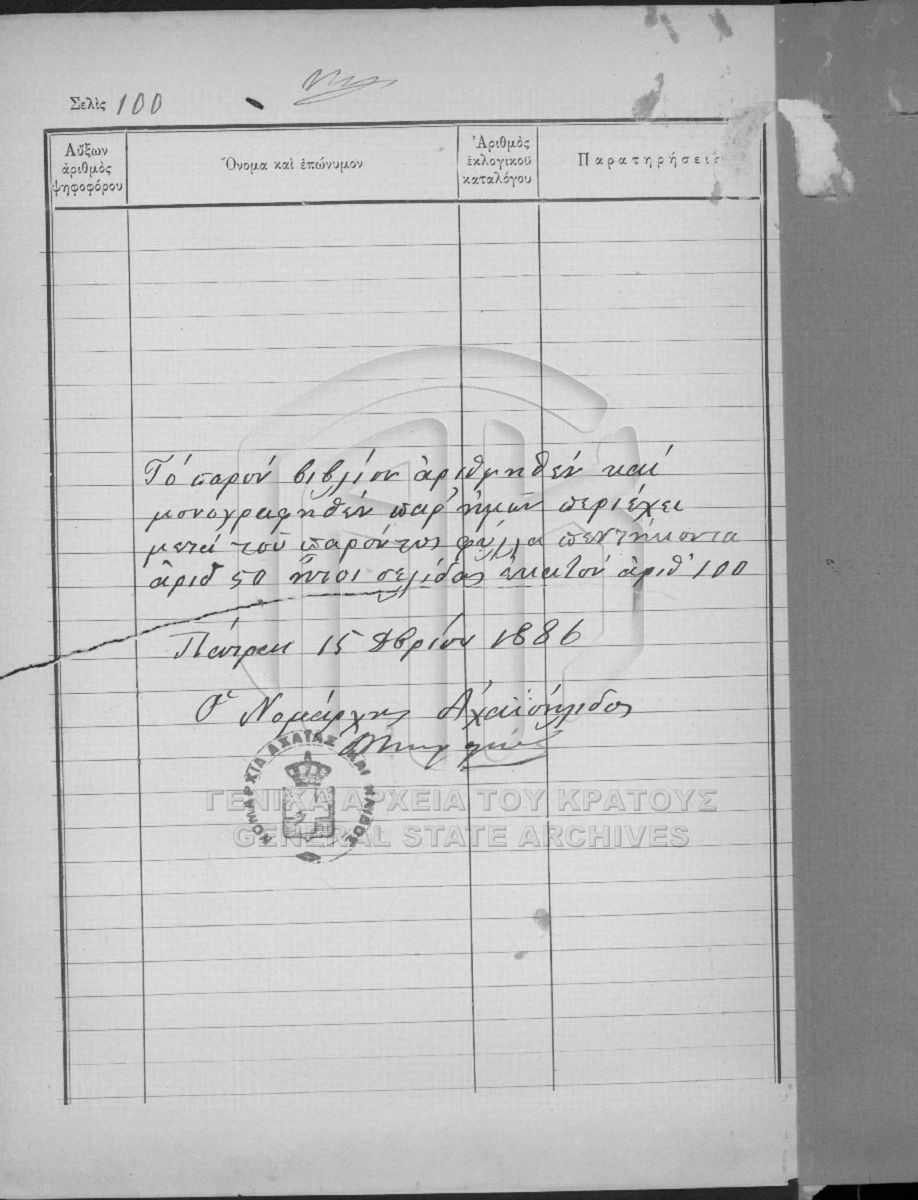 Σελὶς 100
Αὔξων ἀριθμὸς ψηφοφόρου
Ὄνομα καὶ ἐπώνυμον
Ἀριθμὸς ἐκλογικοῦ καταλόγου
Παρατηρήσεις
Τό παρόν βιβλίον ἀριθμηθέν καί
μονογραφηθέν παρ' ἡμῶν περιέχει
μετά τοῦ παρόντος φύλλα πεντήκοντα
ἀριθ 50 ἤτοι σελίδας ἑκατόν ἀριθ 100
Πάτραι 15 1886
Ὁ Νομάρχης Ἀχαϊοήλιδος
ΝΟΜΑΡΧΙΑ ΑΧΑΪΑΣ ΚΑΙ ΗΛΙΔΟΣ
ΓΕΝΙΚΑ ΑΡΧΕΙΑ ΤΟΥ ΚΡΑΤΟΥΣ
GENERAL STATE ARCHIVES